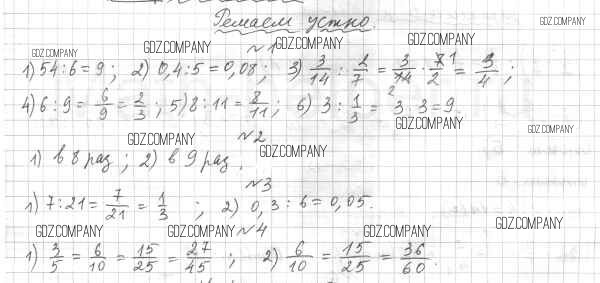 Решаем устно.
GDZ.COMPANY
№1
GDZ.COMPANY GDZ.COMPANY GDZ.COMPANY GDZ.COMPANY
1) 54:6=9; 2) 0,4:5=0,08; 3) 3/14 : 2/7 = 3/14 · 7/2 = 3/4;
4) 6:9 = 6/9 = 2/3; 5) 8:11 = 8/11; 6) 3 : 1/3 = 3·3=9.
GDZ.COMPANY
№2
GDZ.COMPANY GDZ.COMPANY
1) в 8 раз; 2) в 9 раз.
GDZ.COMPANY
№3
1) 7:21 = 7/21 = 1/3; 2) 0,3:6=0,05.
№4
GDZ.COMPANY GDZ.COMPANY GDZ.COMPANY GDZ.COMPANY
1) 3/5 = 6/10 = 15/25 = 27/45; 2) 6/10 = 15/25 = 36/60.